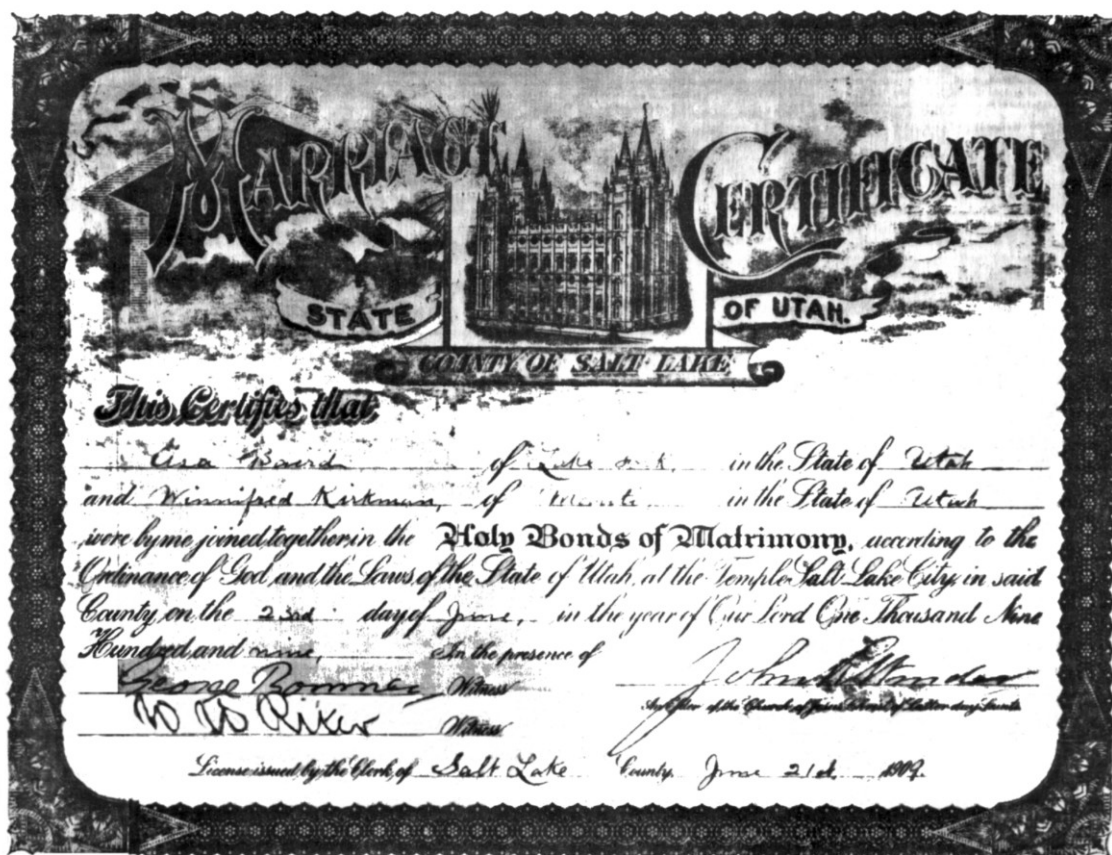 MARRIAGE CERTIFICATE
STATE OF UTAH.
COUNTY OF SALT LAKE
This Certifies that
Asa Baird of Lake in the State of Utah
and Winnifred Kirkman, of in the State of Utah
were by me joined together in the Holy Bonds of Matrimony, according to the
Ordinance of God and the Laws of the State of Utah, at the Temple Salt Lake City, in said
County on the 23rd day of June, in the year of Our Lord One Thousand Nine
Hundred and nine, In the presence of
George Witness
W W Riker Witness
John
An Elder of the Church of Jesus Christ of Latter day Saints
License issued by the Clerk of Salt Lake County, June 21st 1909.